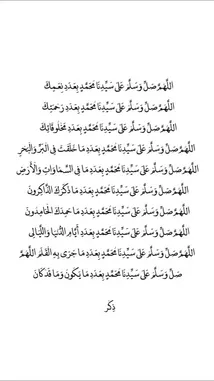 اللَّهُمَّ صَلِّ وَسَلِّمْ عَلَى سَيِّدِنَا مُحَمَّدٍ بِعَدَدِ نِعَمِكَ
اللَّهُمَّ صَلِّ وَسَلِّمْ عَلَى سَيِّدِنَا مُحَمَّدٍ بِعَدَدِ رَحْمَتِكَ
اللَّهُمَّ صَلِّ وَسَلِّمْ عَلَى سَيِّدِنَا مُحَمَّدٍ بِعَدَدِ مَخْلُوقَاتِكَ
اللَّهُمَّ صَلِّ وَسَلِّمْ عَلَى سَيِّدِنَا مُحَمَّدٍ بِعَدَدِ مَا خَلَقْتَ فِي الْبَرِّ وَالْبَحْرِ
اللَّهُمَّ صَلِّ وَسَلِّمْ عَلَى سَيِّدِنَا مُحَمَّدٍ بِعَدَدِ مَا فِي السَّمَاوَاتِ وَالْأَرْضِ
اللَّهُمَّ صَلِّ وَسَلِّمْ عَلَى سَيِّدِنَا مُحَمَّدٍ بِعَدَدِ مَا ذَكَرَكَ الذَّاكِرُونَ
اللَّهُمَّ صَلِّ وَسَلِّمْ عَلَى سَيِّدِنَا مُحَمَّدٍ بِعَدَدِ مَا حَمِدَكَ الْحَامِدُونَ
اللَّهُمَّ صَلِّ وَسَلِّمْ عَلَى سَيِّدِنَا مُحَمَّدٍ بِعَدَدِ أَيَّامِ الدُّنْيَا وَاللَّيَالِي
اللَّهُمَّ صَلِّ وَسَلِّمْ عَلَى سَيِّدِنَا مُحَمَّدٍ بِعَدَدِ مَا جَرَى بِهِ الْقَلَمُ اللَّهُمَّ
صَلِّ وَسَلِّمْ عَلَى سَيِّدِنَا مُحَمَّدٍ بِعَدَدِ مَا يَكُونُ وَمَا قَدْ كَانَ
ذِكْر